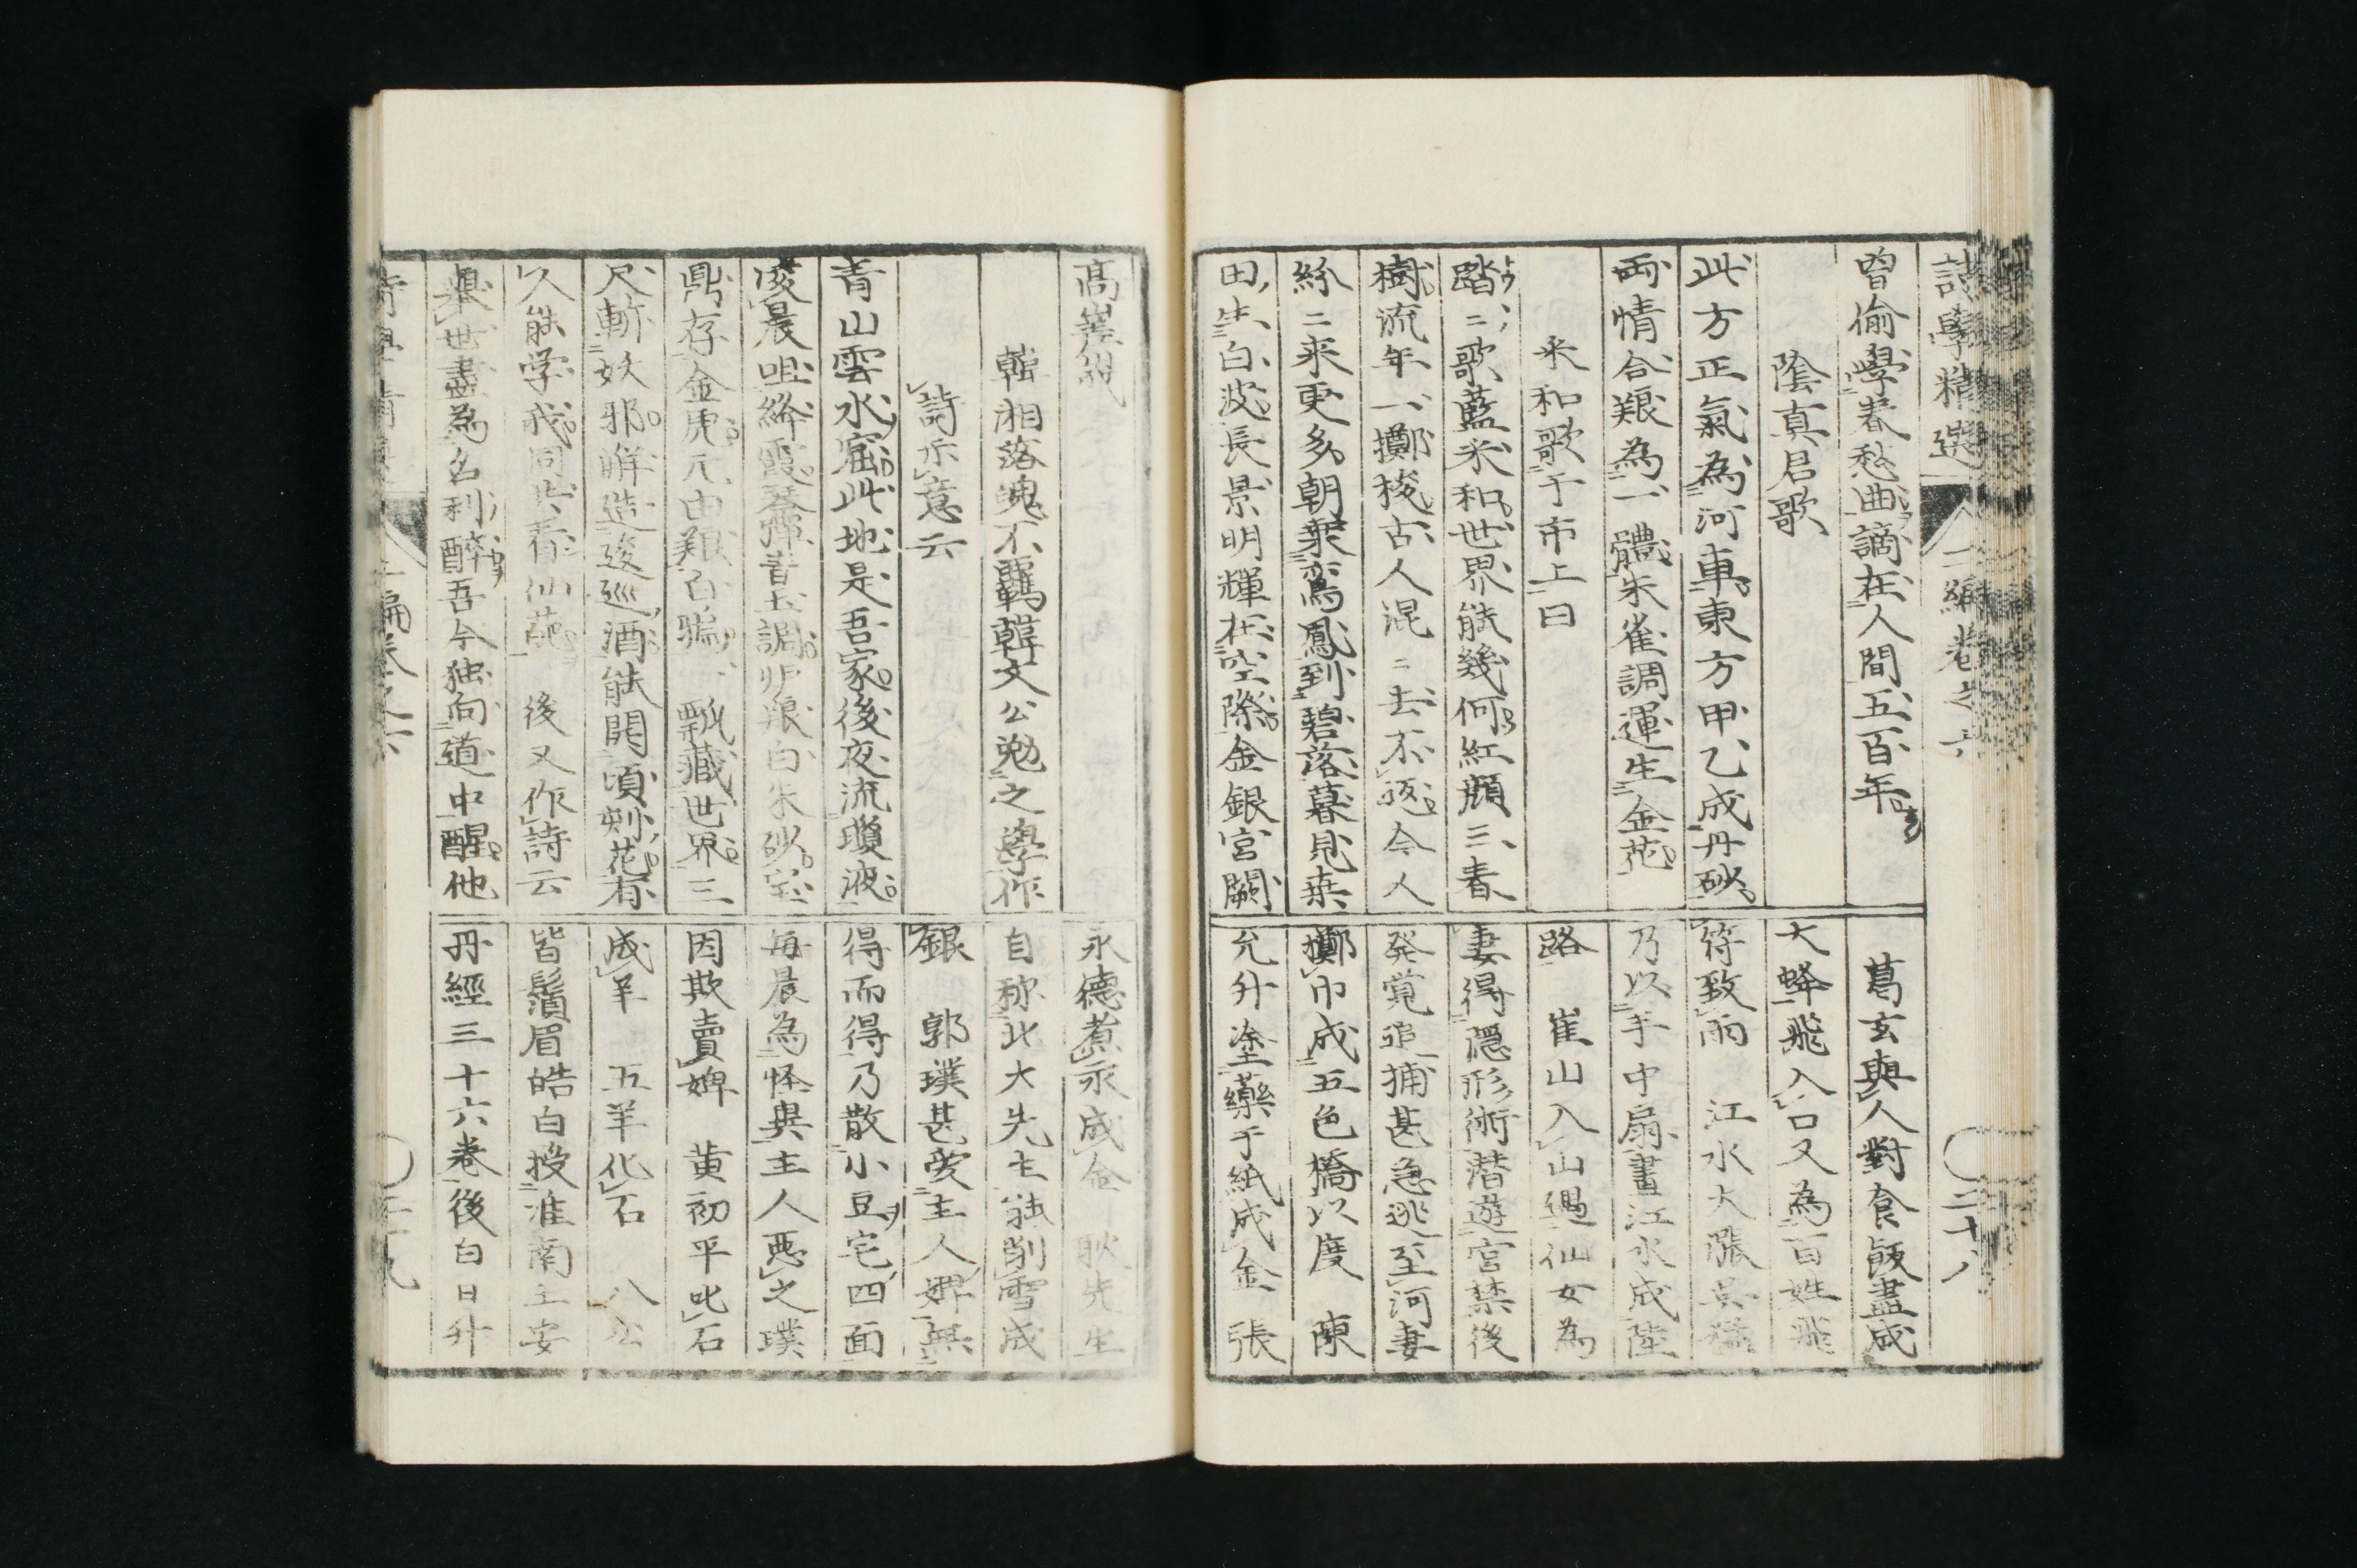 詩學精選 二編卷之六 二十八
曽偷學春愁曲謫在人間五百年
陰真君歌
此方正氣為河車東方甲乙成丹砂
両情合艱為一體朱雀調運生金花
采和歌于市上曰
踏〻歌藍采和世界能幾何紅顔三春
樹流年一擲梭古人混〻去不返今人
紛〻来更多朝乗鸞鳳到碧落暮見桒
田生白波長景明輝在空際金銀宮闕
葛玄與人對食飯盡成
大蜂飛入口又為百姓飛
符致雨 江水大漲呉猛
乃以手中扇畫江水成陸
路 崔山入山遇仙女為
妻得隠形術潜遊宮禁後
発覚追捕甚急逃至河妻
擲巾成五色橋以度 陳
允升塗藥于紙成金 張
高嵳峩
韓湘落魄不羈韓文公勉之學作
詩示意云
青山雲水窟此地是吾家後夜流瓊液
凌晨咀絳霞琴弾碧玉調炉煉白朱砂宝
鼎存金虎元由艱白鴉一瓢藏世界三
尺斬妖邪解造逡巡酒能開頃刻花有
人能学我同共看仙葩 後又作詩云
舉世盡為名利醉吾今独向道中醒他
永德煮汞成金 耿先生
自称北大先生能削雪成
銀 郭璞甚愛主人婢無
得而得乃散小豆宅四面
毎晨為怪異主人悪之璞
因欺賣婢 黄初平叱石
成羊 五羊化石 八公
皆鬚眉皓白授淮南王安
丹經三十六巻後白日升